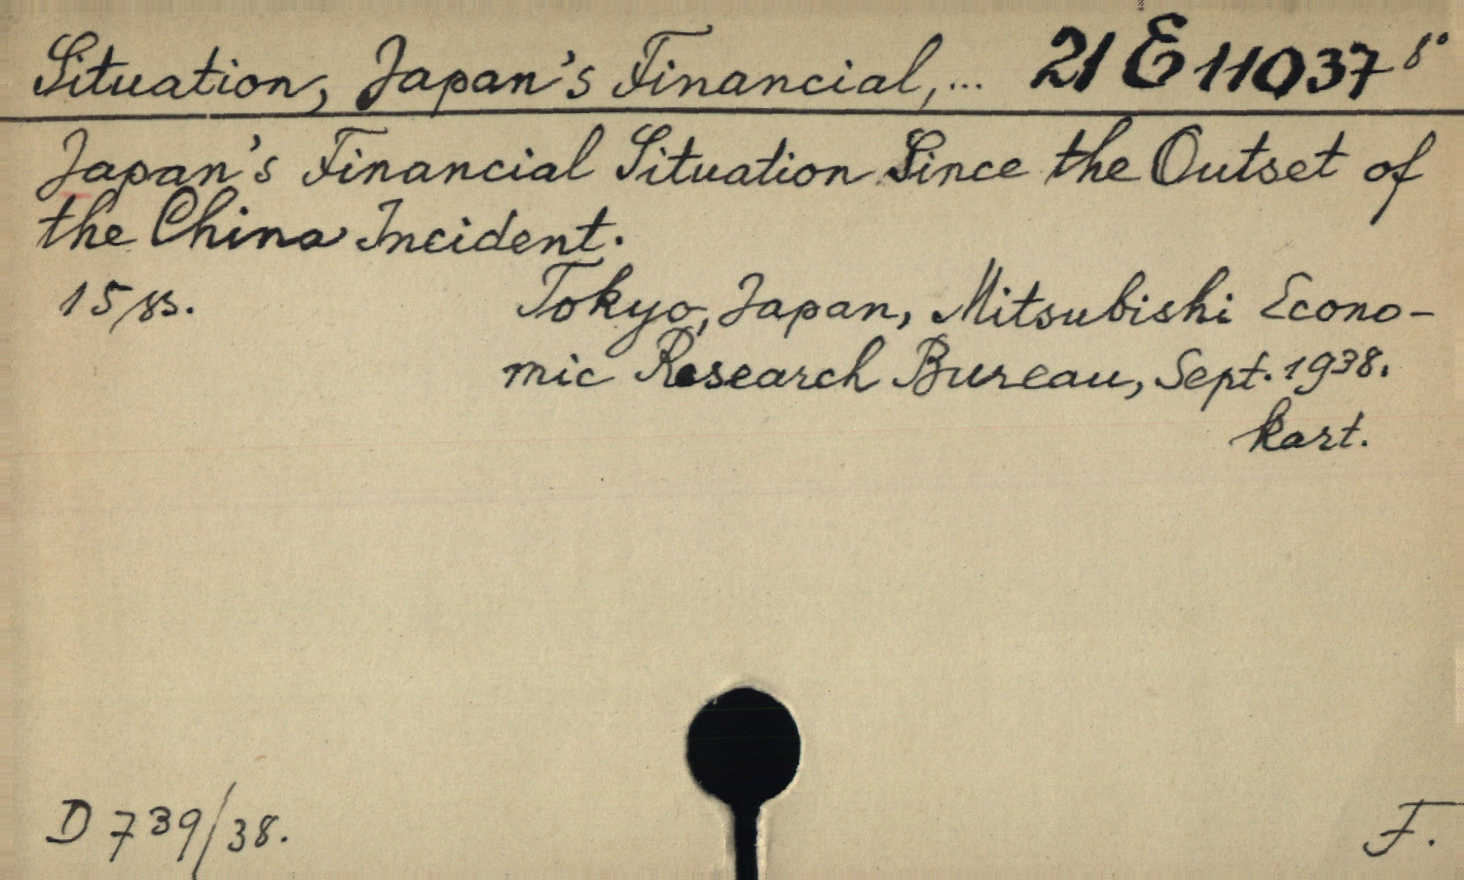 Situation, Japan's Financial,... 21 E 11037 8°
Japan's Financial Situation Since the Outset of
the China Incident.
15/ss. Tokyo, Japan, Mitsubishi Econo-
mic Research Bureau, Sept. 1938.
kart.
D 739/38. F.